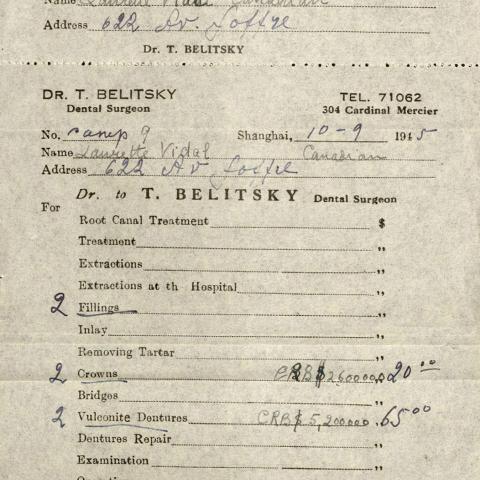 Name Laurette Vidal Canadian
Address 622 Av. Joffre
Dr. T. BELITSKY
DR. T. BELITSKY TEL. 71062
Dental Surgeon 304 Cardinal Mercier
No. camp 9 Shanghai, 10-9 1945
Name Laurette Vidal Canadian
Address 622 Av Joffre
Dr. to T. BELITSKY Dental Surgeon
For
Root Canal Treatment $
Treatment „
Extractions „
Extractions at th Hospital „
2 Fillings „
Inlay „
Removing Tartar „
2 Crowns CRB$ 2600000 $20.00
Bridges „
2 Vulconite Dentures CRB$ 5,200000 65.00
Dentures Repair „
Examination „